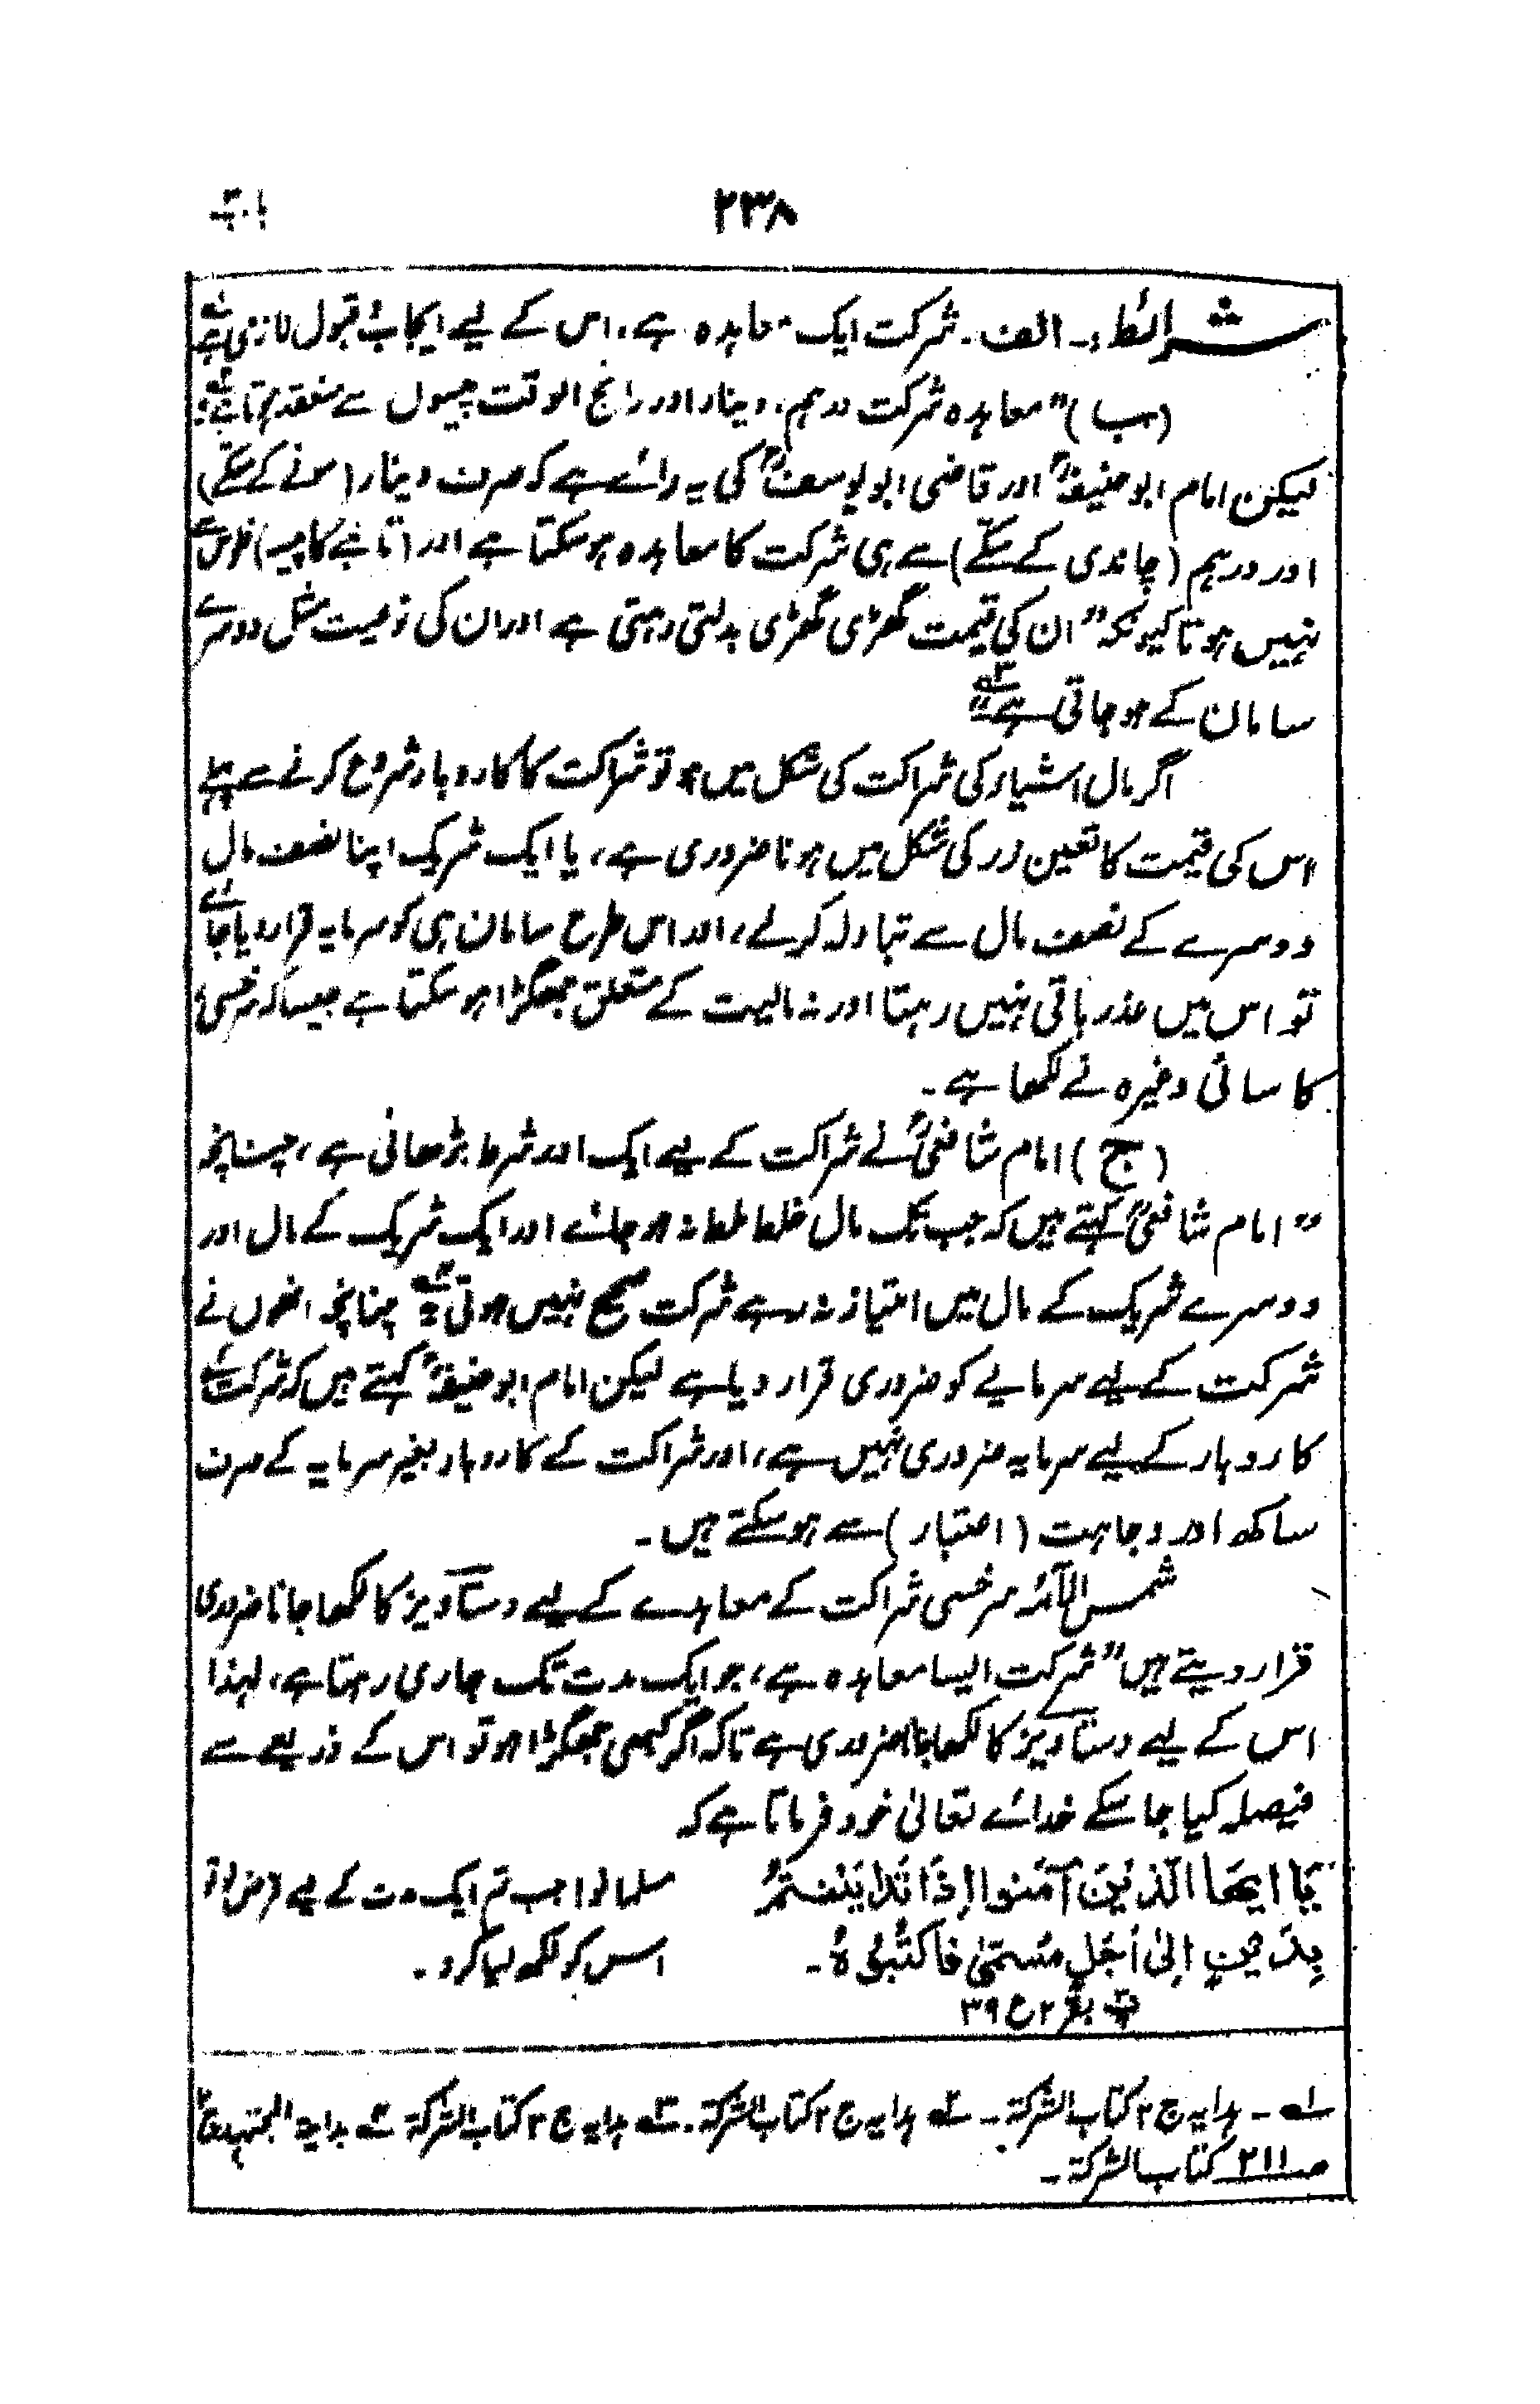 ۲۳۸
شرائط:۔ الف۔ شرکت ایک معاہدہ ہے، اس کے لیے ایجاب و قبول لازمی ہے
(ب) "معاہدہ شرکت درہم، دینار اور رائج الوقت پیسوں سے منعقد ہوتا ہے"
لیکن امام ابو حنیفہؒ اور قاضی ابو یوسفؒ کی یہ رائے ہے کہ صرف دینار (سونے کے سکّے)
اور درہم (چاندی کے سکّے) سے ہی شرکت کا معاہدہ ہو سکتا ہے اور (تانبے کا پیسہ) فلوس سے
نہیں ہوتا کیونکہ "ان کی قیمت گھڑی گھڑی بدلتی رہتی ہے اور ان کی نوعیت مثل دوسرے
سامان کے ہو جاتی ہے"
اگر مال اشیار کی شراکت کی شکل میں ہو تو شراکت کا کاروبار شروع کرنے سے پہلے
اس کی قیمت کا تعین زر کی شکل میں ہونا ضروری ہے، یا ایک شریک اپنا نصف مال
دوسرے کے نصف مال سے تبادلہ کرلے، اور اس طرح سامان ہی کو سرمایہ قرار دیا جائے
تو اس میں عذر باقی نہیں رہتا اور نہ مالیت کے متعلق جھگڑا ہو سکتا ہے جیسا کہ سرخسیؒ
کاسانی وغیرہ نے لکھا ہے۔
(ج) امام شافعیؒ نے شراکت کے لیے ایک اور شرط بڑھائی ہے، چنانچہ
"امام شافعیؒ کہتے ہیں کہ جب تک مال خلط ملط نہ ہو جائے اور ایک شریک کے مال اور
دوسرے شریک کے مال میں امتیاز نہ رہے شرکت صحیح نہیں ہوتی" چنانچہ انھوں نے
شرکت کے لیے سرمایے کو ضروری قرار دیا ہے لیکن امام ابو حنیفہؒ کہتے ہیں کہ شرکت کے
کاروبار کے لیے سرمایہ ضروری نہیں ہے، اور شراکت کے کاروبار بغیر سرمایہ کے صرف
ساکھ اور وجاہت (اعتبار) سے ہو سکتے ہیں۔
شمس الائمہ سرخسی شراکت کے معاہدے کے لیے دستاویز کا لکھا جانا ضروری
قرار دیتے ہیں "شرکت ایسا معاہدہ ہے، جو ایک مدت تک جاری رہتا ہے، لہٰذا
اس کے لیے دستاویز کا لکھا جانا ضروری ہے تاکہ اگر کبھی جھگڑا ہو تو اس کے ذریعے سے
فیصلہ کیا جا سکے خدائے تعالیٰ خود فرماتا ہے کہ
یَا اَیُّھَا الَّذِیْنَ آمَنُوا اِذَا تَدَایَنْتُمْ مسلمانو! جب تم ایک مدت کے لیے قرض لو تو
بِدَیْنٍ اِلٰی اَجَلٍ مُسَمًّی فَاکْتُبُوْہُ۔ اس کو لکھ لیا کرو۔
بقرہ ۲ ع ۳۹
۱ے۔ ہدایہ ج ۲ کتاب الشرکۃ۔ ۲ے ہدایہ ج ۲ کتاب الشرکۃ۔ ۳ے ہدایہ ج ۲ کتاب الشرکۃ ۴ے بدایۃ المجتہد ج
صـ ۲۱۱ کتاب الشرکۃ۔